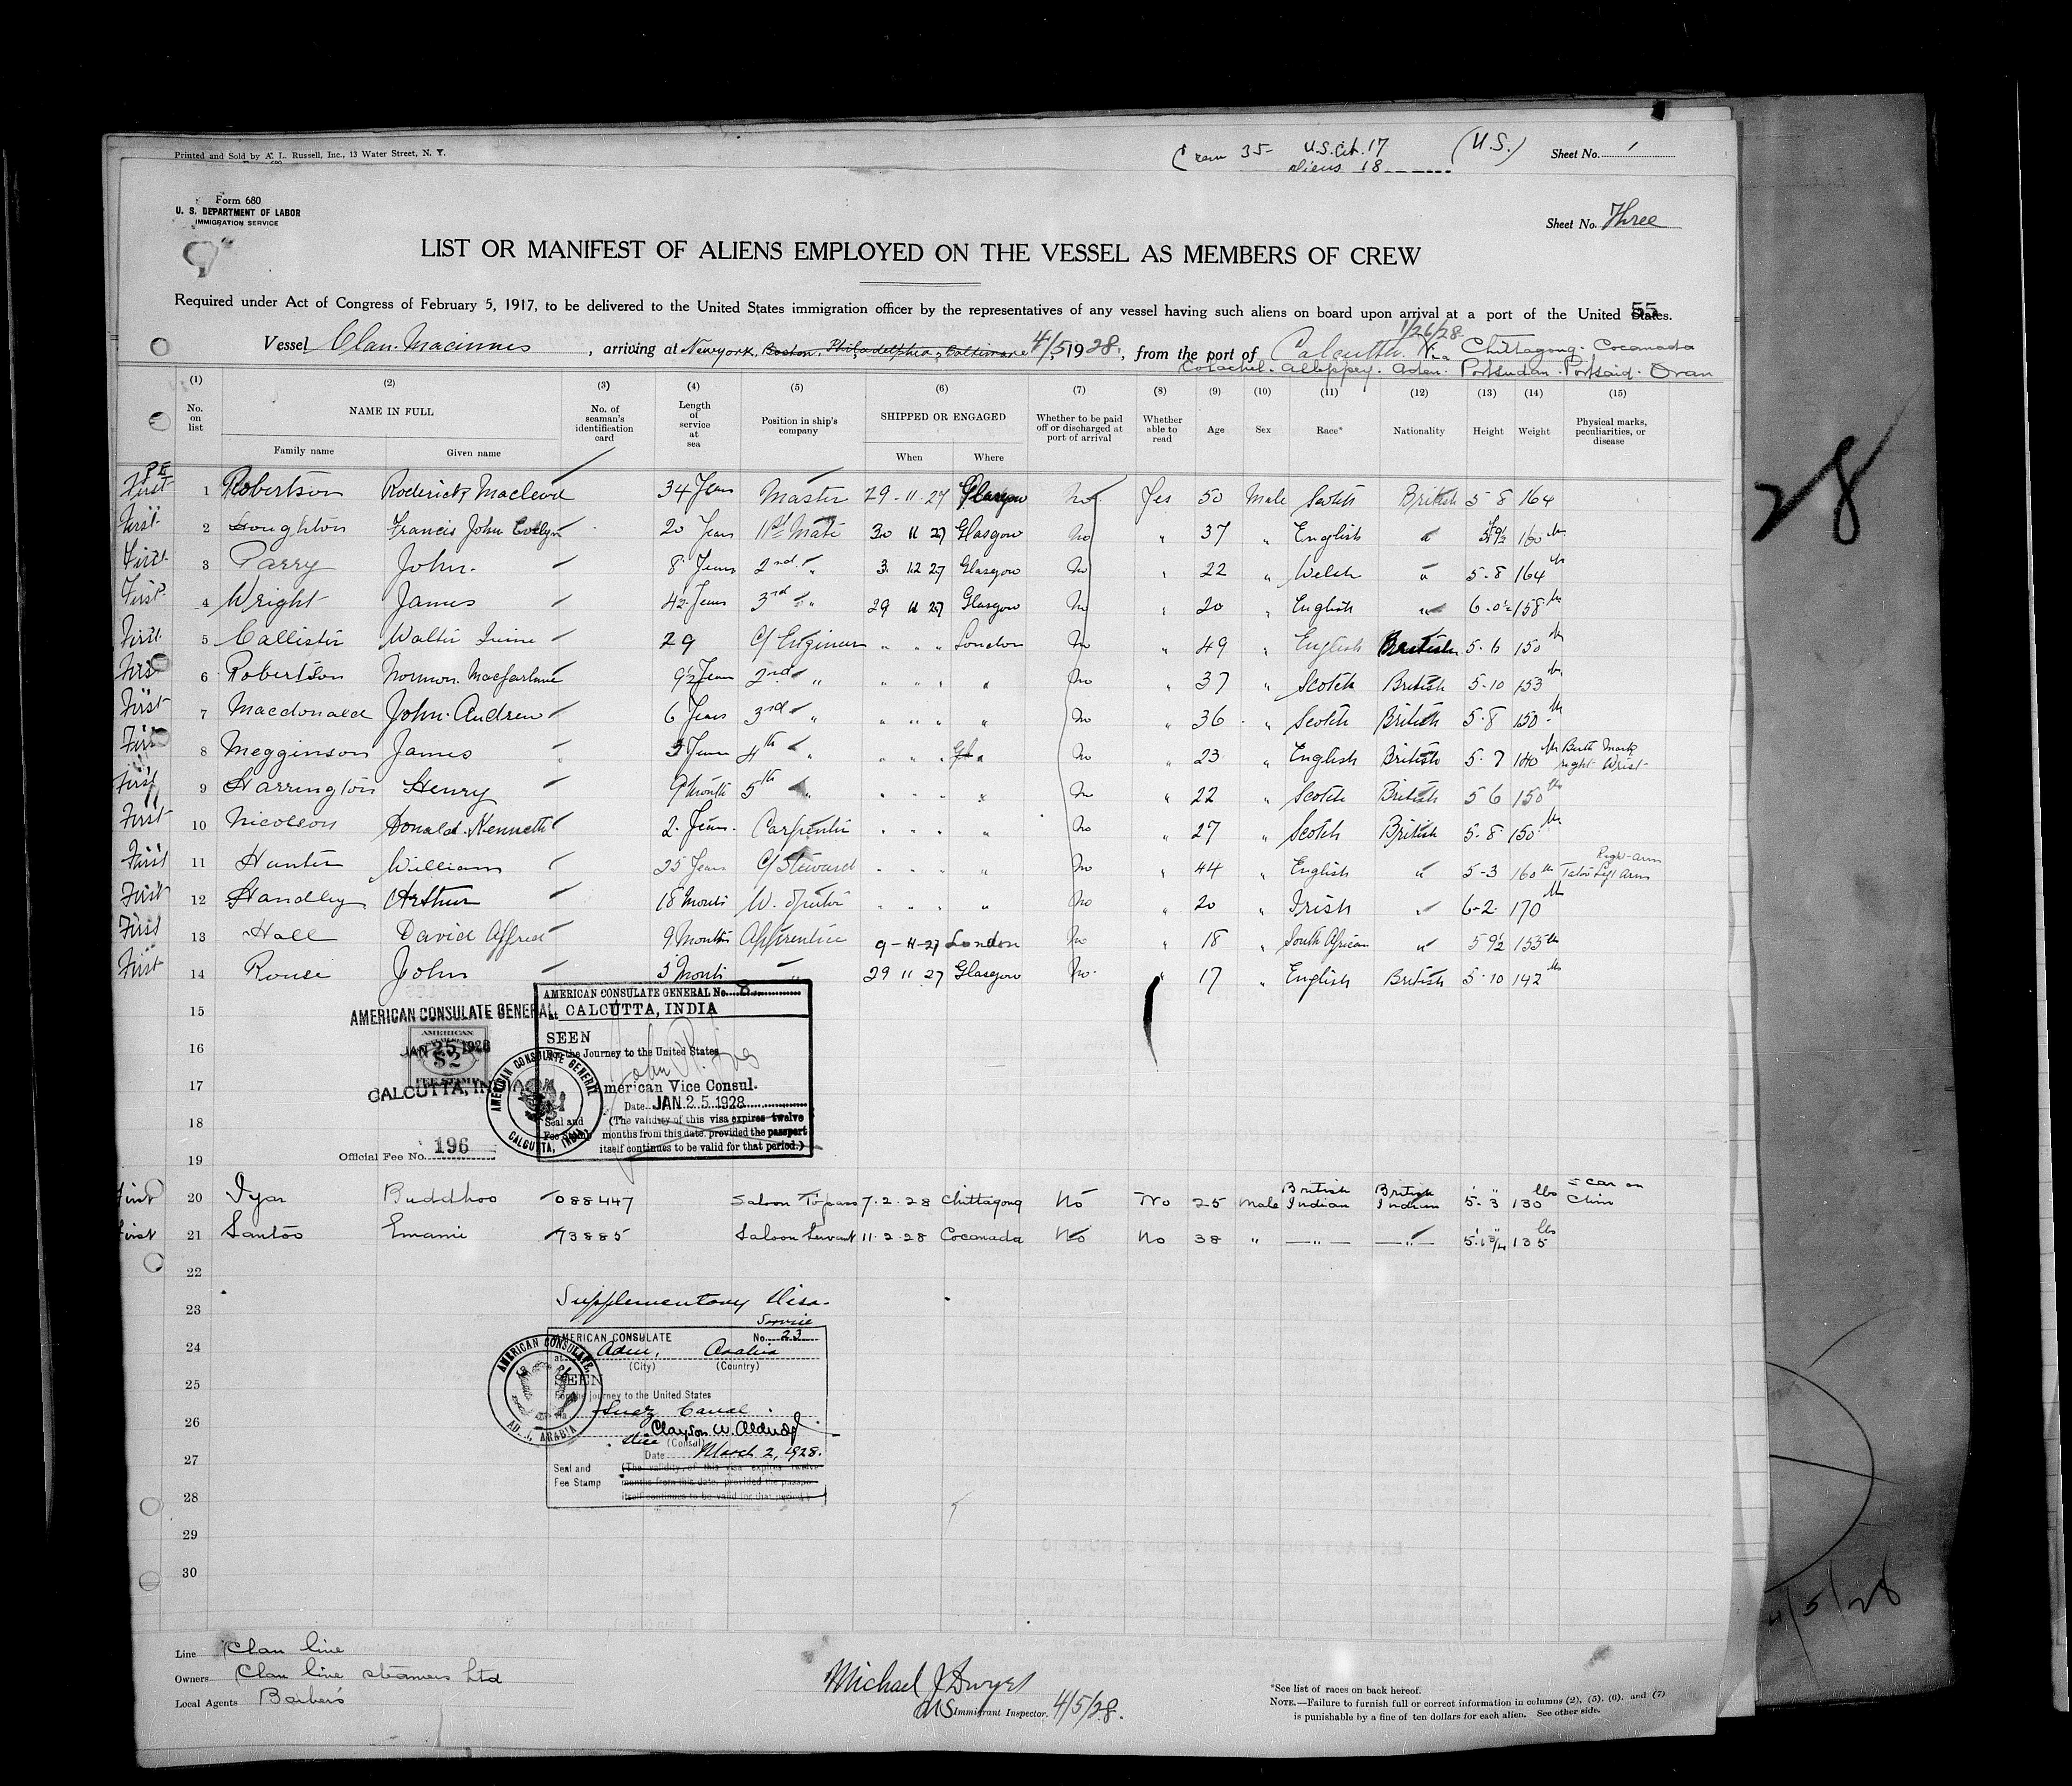 Printed and Sold by A. L. Russell, Inc., 13 Water Street, N. Y.
Crew 35 U.S. Cit. 17 (U.S.) Sheet No. 1
aliens 18
Form 680
U. S. DEPARTMENT OF LABOR
IMMIGRATION SERVICE
Sheet No. Three
LIST OR MANIFEST OF ALIENS EMPLOYED ON THE VESSEL AS MEMBERS OF CREW
Required under Act of Congress of February 5, 1917, to be delivered to the United States immigration officer by the representatives of any vessel having such aliens on board upon arrival at a port of the United States.
55
1/26/28
Vessel Clan Macinnes, arriving at New york, Boston, Philadelphia, Baltimore 4/5 1928, from the port of Calcutta. Via Chittagong. Cocanada
Colachel. Alleppey. Aden. Portsudan. Portsaid. Oran
(1) (2) (3) (4) (5) (6) (7) (8) (9) (10) (11) (12) (13) (14) (15)
No. on list NAME IN FULL Family name Given name No. of seaman's identification card Length of service at sea Position in ship's company SHIPPED OR ENGAGED When Where Whether to be paid off or discharged at port of arrival Whether able to read Age Sex Race* Nationality Height Weight Physical marks, peculiarities, or disease
PE
First 1 Robertson Roderick Macleod 34 Years Master 29-11-27 Glasgow No Yes 50 Male Scotch British 5 8 164
First 2 Houghton Francis John Evelyn 20 Years 1st Mate 30 11 27 Glasgow No " 37 " English " 160 lbs
First 3 Parry John 8 Years 2nd " 3 12 27 Glasgow No " 22 " Welch " 5-8 164 lbs
First 4 Wright James 4½ Years 3rd " 29 11 27 Glasgow No " 20 " English " 6-0½ 158 lbs
First 5 Callister Walter Irvine 29 C/ Engineer " " " London No " 49 " English British 5-6 150 lbs
First 6 Robertson Norman Macfarlane 9½ Years 2nd " " " " " No " 37 " Scotch British 5-10 153 lbs
First 7 Macdonald John Andrew 6 Years 3rd " " " " " No " 36 " Scotch British 5-8 150 lbs
First 8 Megginson James 3 Years 4th " " " " " No " 23 " English British 5-7 140 lbs Birth Mark right Wrist
First 9 Harrington Henry 9 Month 5th " " " " " No " 22 " Scotch British 5 6 150 lbs
First 10 Nicolson Donald Kenneth 2 Years Carpenter " " " " No " 27 " Scotch British 5-8 150 lbs
First 11 Hunter William 25 Years C/ Steward " " " " No " 44 " English " 5-3 160 lbs Right-arm Left Arm
First 12 Handley Arthur 18 Months W. " " " " No " 20 " Irish " 6-2 170 lbs
First 13 Hall David Alfred 9 Months Apprentice 9-11-27 London No " 18 " South African " 5 9½ 155 lbs
First 14 John 3 Months " 29 11 27 Glasgow No " 17 " English British 5-10 142 lbs
15
AMERICAN CONSULATE GENERAL
AMERICAN
JAN 25 1928
$2
FEE STAMP
CALCUTTA, INDIA
Official Fee No. 196
AMERICAN CONSULATE GENERAL No. 8
at CALCUTTA, INDIA
SEEN
For the Journey to the United States
American Vice Consul.
Date JAN 25 1928
Seal and Fee Stamp
(The validity of this visa expires twelve
months from this date, provided the passport
itself continues to be valid for that period.)
AMERICAN CONSULATE GENERAL CALCUTTA, INDIA
16
17
18
19
First 20 Iyar Buddhoo 088447 Saloon Topass 7.2.28 Chittagong No No 25 Male British Indian British Indian 5-3 130 lbs Scar on Chin
First 21 Santoo Emami 73885 Saloon Servant 11.2.28 Cocanada No No 38 " " " 135 lbs
22
23
Supplementary Visa.
24
AMERICAN CONSULATE Service No. 23
at Aden, Arabia
(City) (Country)
SEEN
For the journey to the United States
Suez Canal
Clayson W. Aldridge
Vice (Consul)
Date March 2, 1928.
Seal and Fee Stamp
(The validity of this visa expires twelve
months from this date, provided the passport
itself continues to be valid for that period.)
AMERICAN CONSULATE, ADEN, ARABIA
25
26
27
28
29
30
Line Clan Line
Owners Clan Line Steamers Ltd
Local Agents Barbers
Michael J Dwyer
US Immigrant Inspector. 4/5/28.
*See list of races on back hereof.
NOTE.—Failure to furnish full or correct information in columns (2), (5), (6), and (7)
is punishable by a fine of ten dollars for each alien. See other side.
28
4/5/28